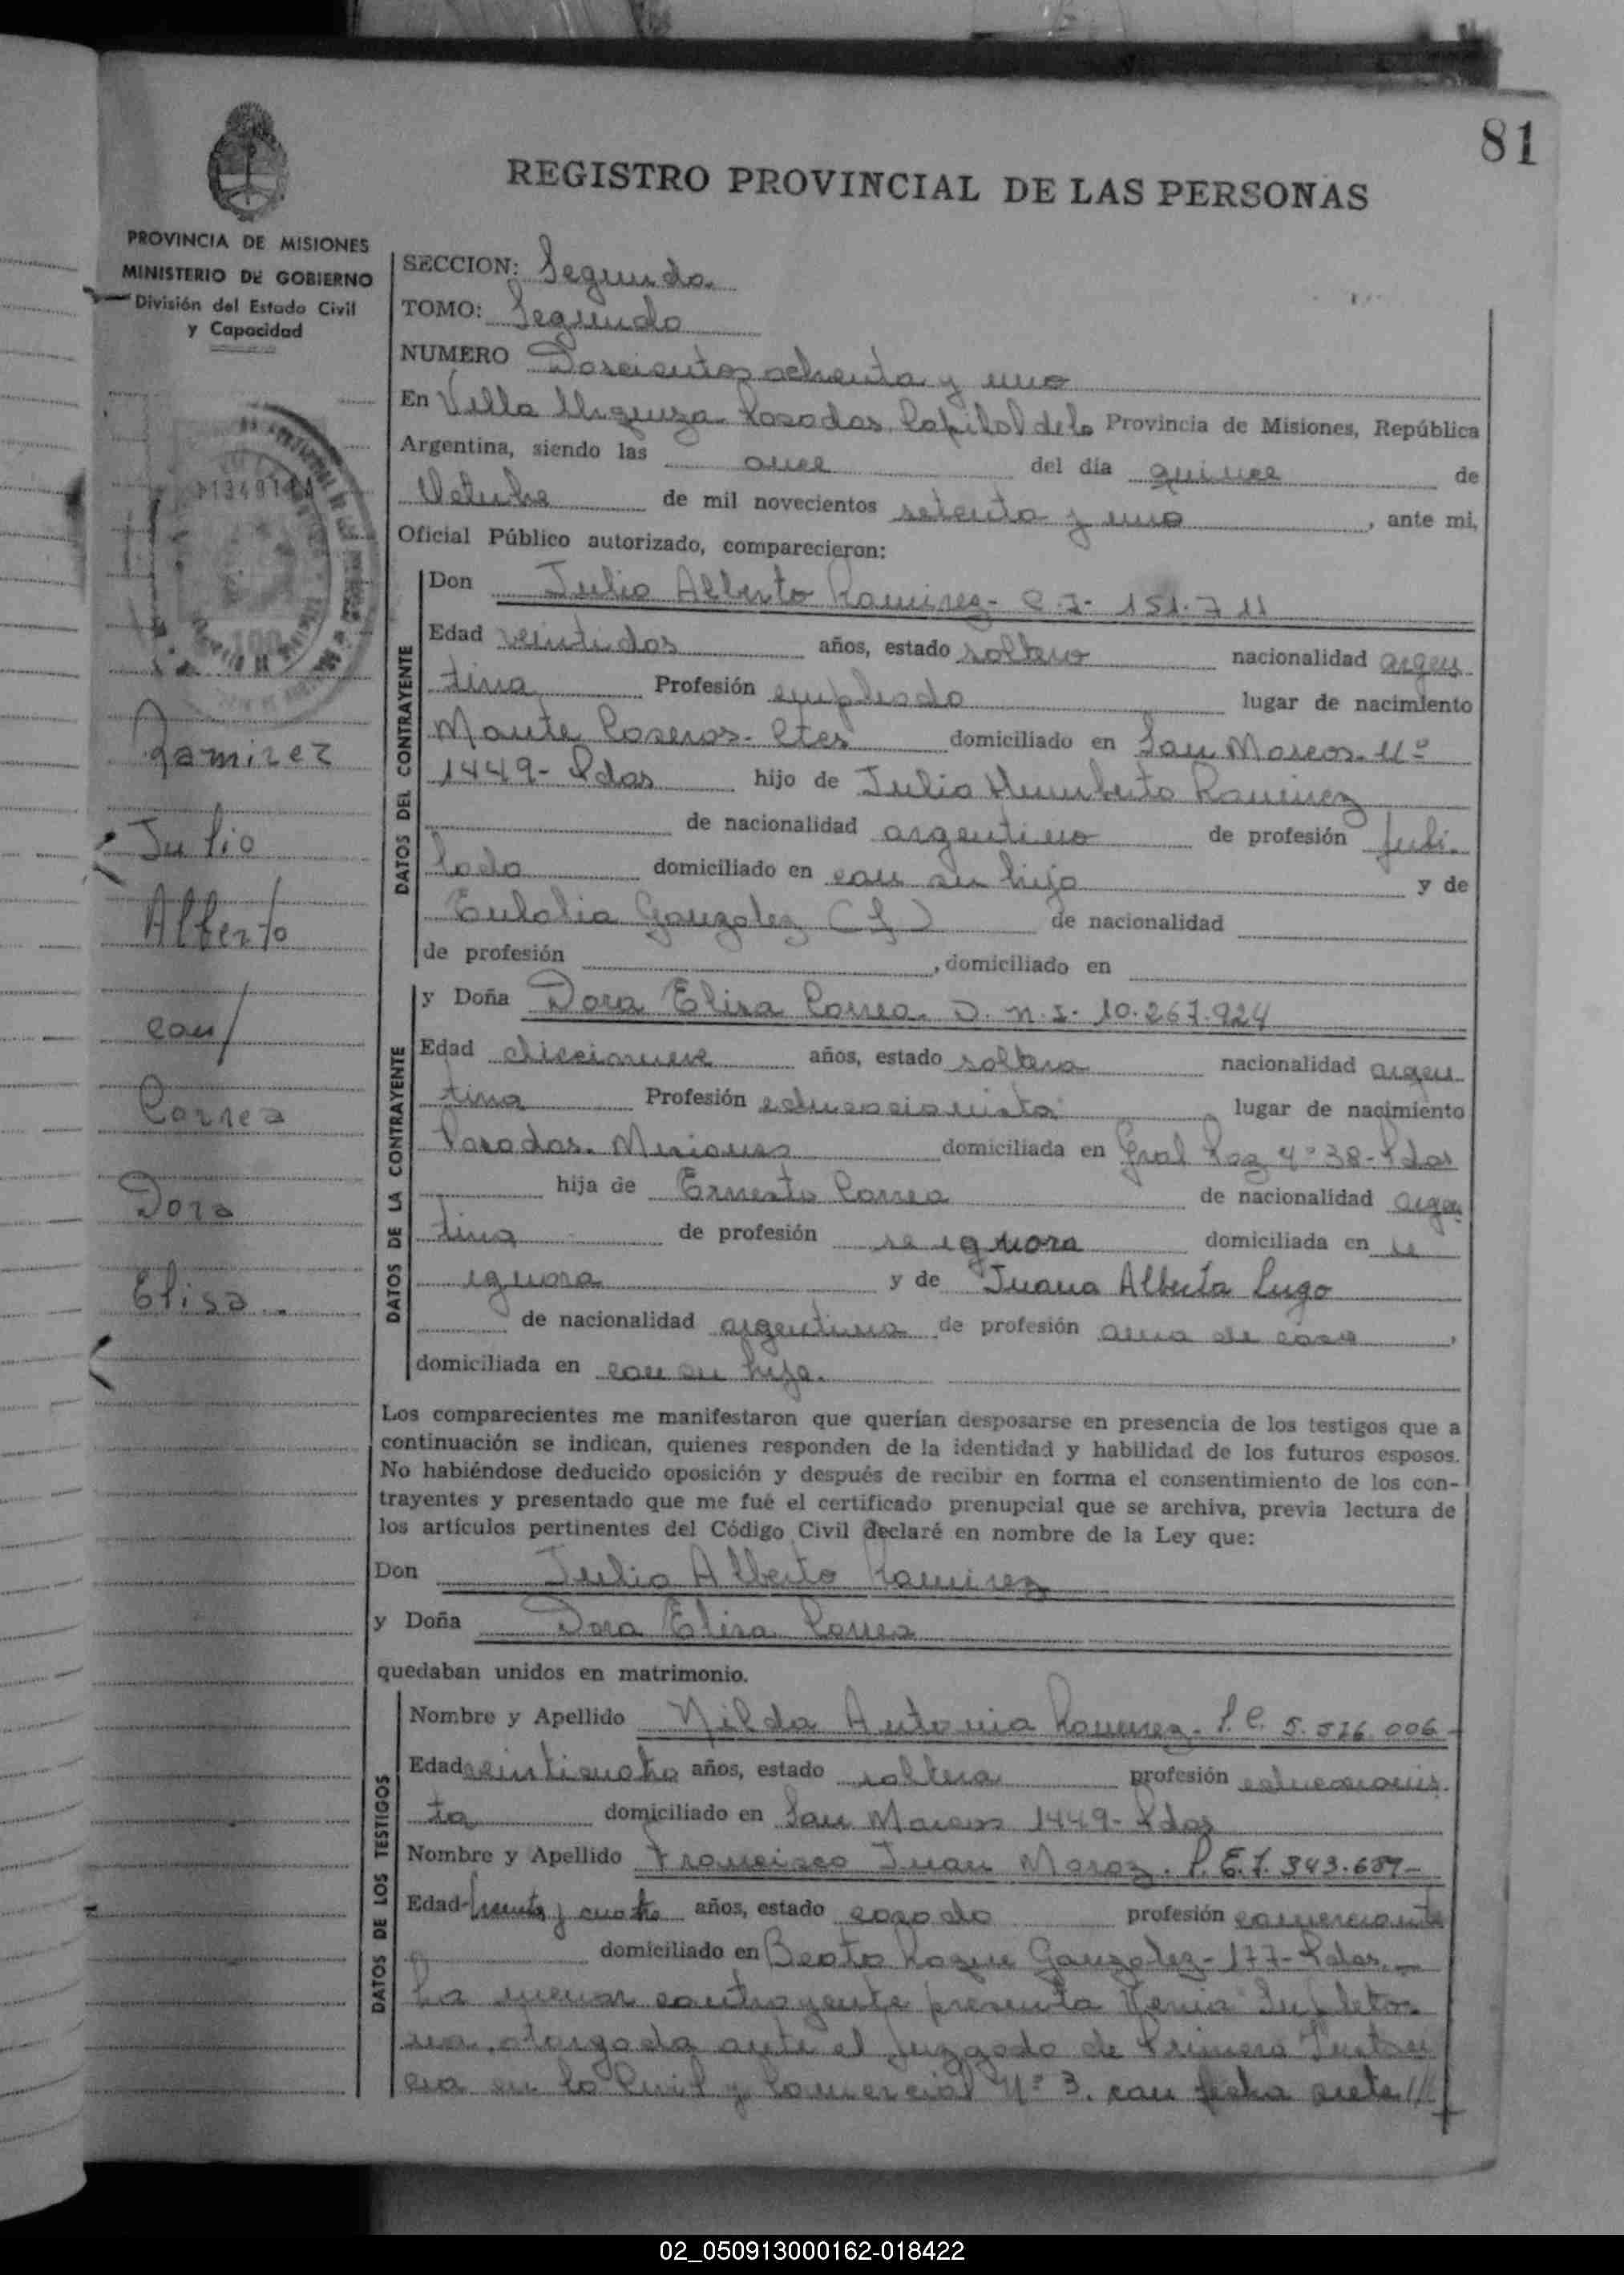 81
REGISTRO PROVINCIAL DE LAS PERSONAS
PROVINCIA DE MISIONES
MINISTERIO DE GOBIERNO
División del Estado Civil
y Capacidad
SECCION: Segunda
TOMO: Segundo
NUMERO Doscientos ochenta y uno
En Villa Urquiza Posadas Capital de la Provincia de Misiones, República
Argentina, siendo las once del día quince de
Octubre de mil novecientos setenta y uno, ante mi,
Oficial Público autorizado, comparecieron:
DATOS DEL CONTRAYENTE
Don Julio Alberto Ramirez - C.I. 151.711
Edad veintidos años, estado soltero nacionalidad argen
tina Profesión empleado lugar de nacimiento
Monte Caseros - Ctes domiciliado en San Marcos - Nº
1449 - Pdas hijo de Julio Humberto Ramirez
de nacionalidad argentino de profesión jubi-
lado domiciliado en con su hijo y de
Eulalia Gonzalez (f) de nacionalidad
de profesión , domiciliado en
DATOS DE LA CONTRAYENTE
y Doña Dora Elisa Correa. D.N.I. 10.267.924
Edad diecinueve años, estado soltera nacionalidad argen
tina Profesión educacionista lugar de nacimiento
Posadas. Misiones domiciliada en Gral Paz Nº 38 - Pdas
hija de Ernesto Correa de nacionalidad argen
tina de profesión se ignora domiciliada en se
ignora y de Juana Alberta Lugo
de nacionalidad argentina de profesión ama de casa,
domiciliada en con su hija.
Los comparecientes me manifestaron que querían desposarse en presencia de los testigos que a
continuación se indican, quienes responden de la identidad y habilidad de los futuros esposos.
No habiéndose deducido oposición y después de recibir en forma el consentimiento de los con-
trayentes y presentado que me fué el certificado prenupcial que se archiva, previa lectura de
los artículos pertinentes del Código Civil declaré en nombre de la Ley que:
Don Julio Alberto Ramirez
y Doña Dora Elisa Correa
quedaban unidos en matrimonio.
DATOS DE LOS TESTIGOS
Nombre y Apellido Nilda Antonia Ramirez - L.C. 5.576.006 -
Edad veinticuatro años, estado soltera profesión educacionis-
ta domiciliado en San Marcos 1449 - Pdas
Nombre y Apellido Francisco Juan Maroz. L.E. 7.543.687 -
Edad treinta y cuatro años, estado casado profesión comerciante
domiciliado en Beato Roque Gonzalez - 177 - Pdas. -
La menor contrayente presenta Venia Supleto-
ria, otorgada ante el Juzgado de Primera Instan
cia en lo Civil y Comercial Nº 3. con fecha siete///
Ramirez
Julio
Alberto
con/
Correa
Dora
Elisa.
02_050913000162-018422